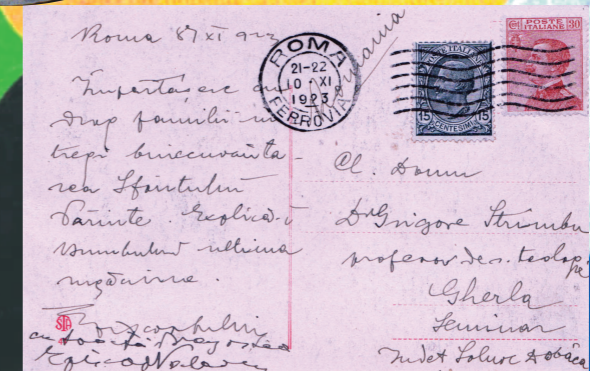 Roma 8/XI 923
Împărtășesc cu
drag familii în
tregi binecuvânta-
rea Sfântului
Părinte. Explică-i
ultima
rugăciune.
cu toată dragostea
Episcop
ROMA
21-22
10·XI
1923
FERROVIA
Romania
POSTE ITALIANE
15 CENTESIMI 15
POSTE ITALIANE 30
Cl. Domn
Dr Grigore Strîmbu
profesor de s. teologie
Gherla
Seminar
Județ Solnoc Dobâca